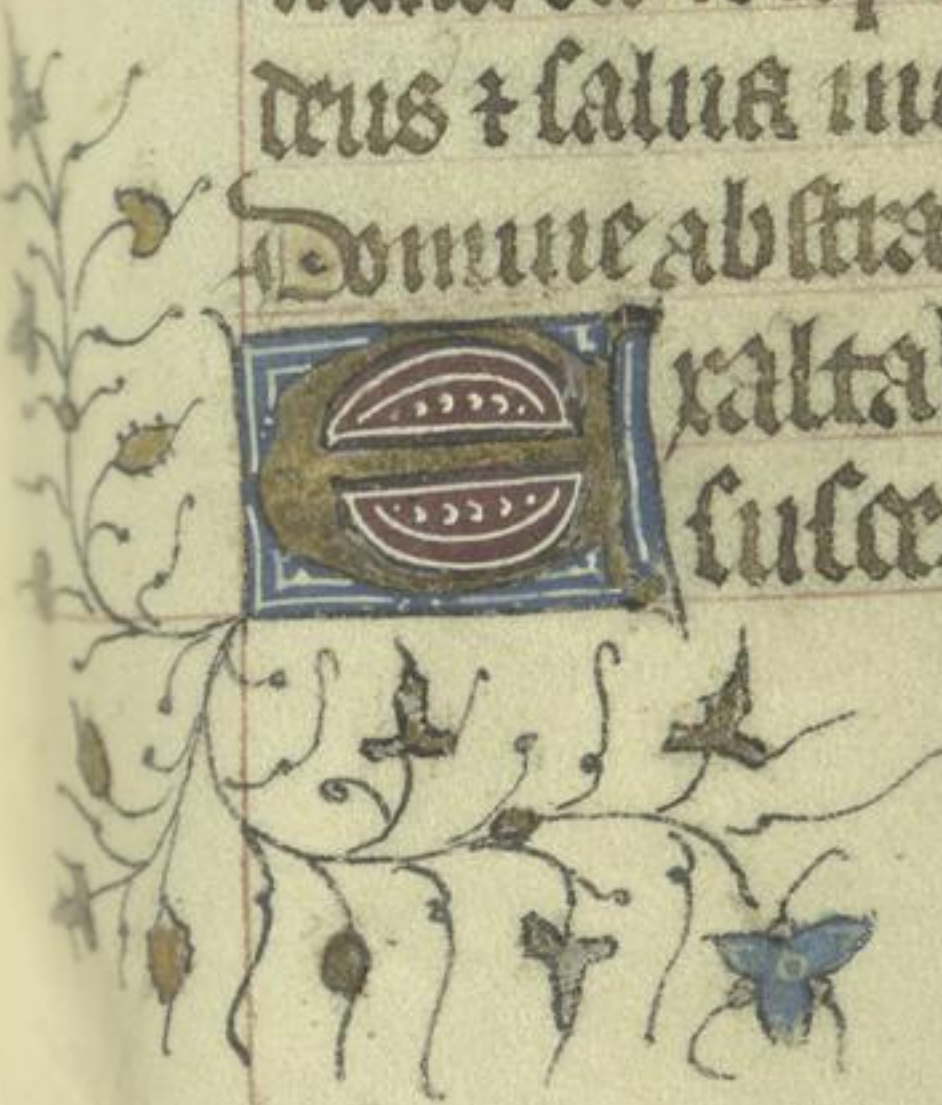 deus ⁊ salua
Domine abstra
Exalta
susce